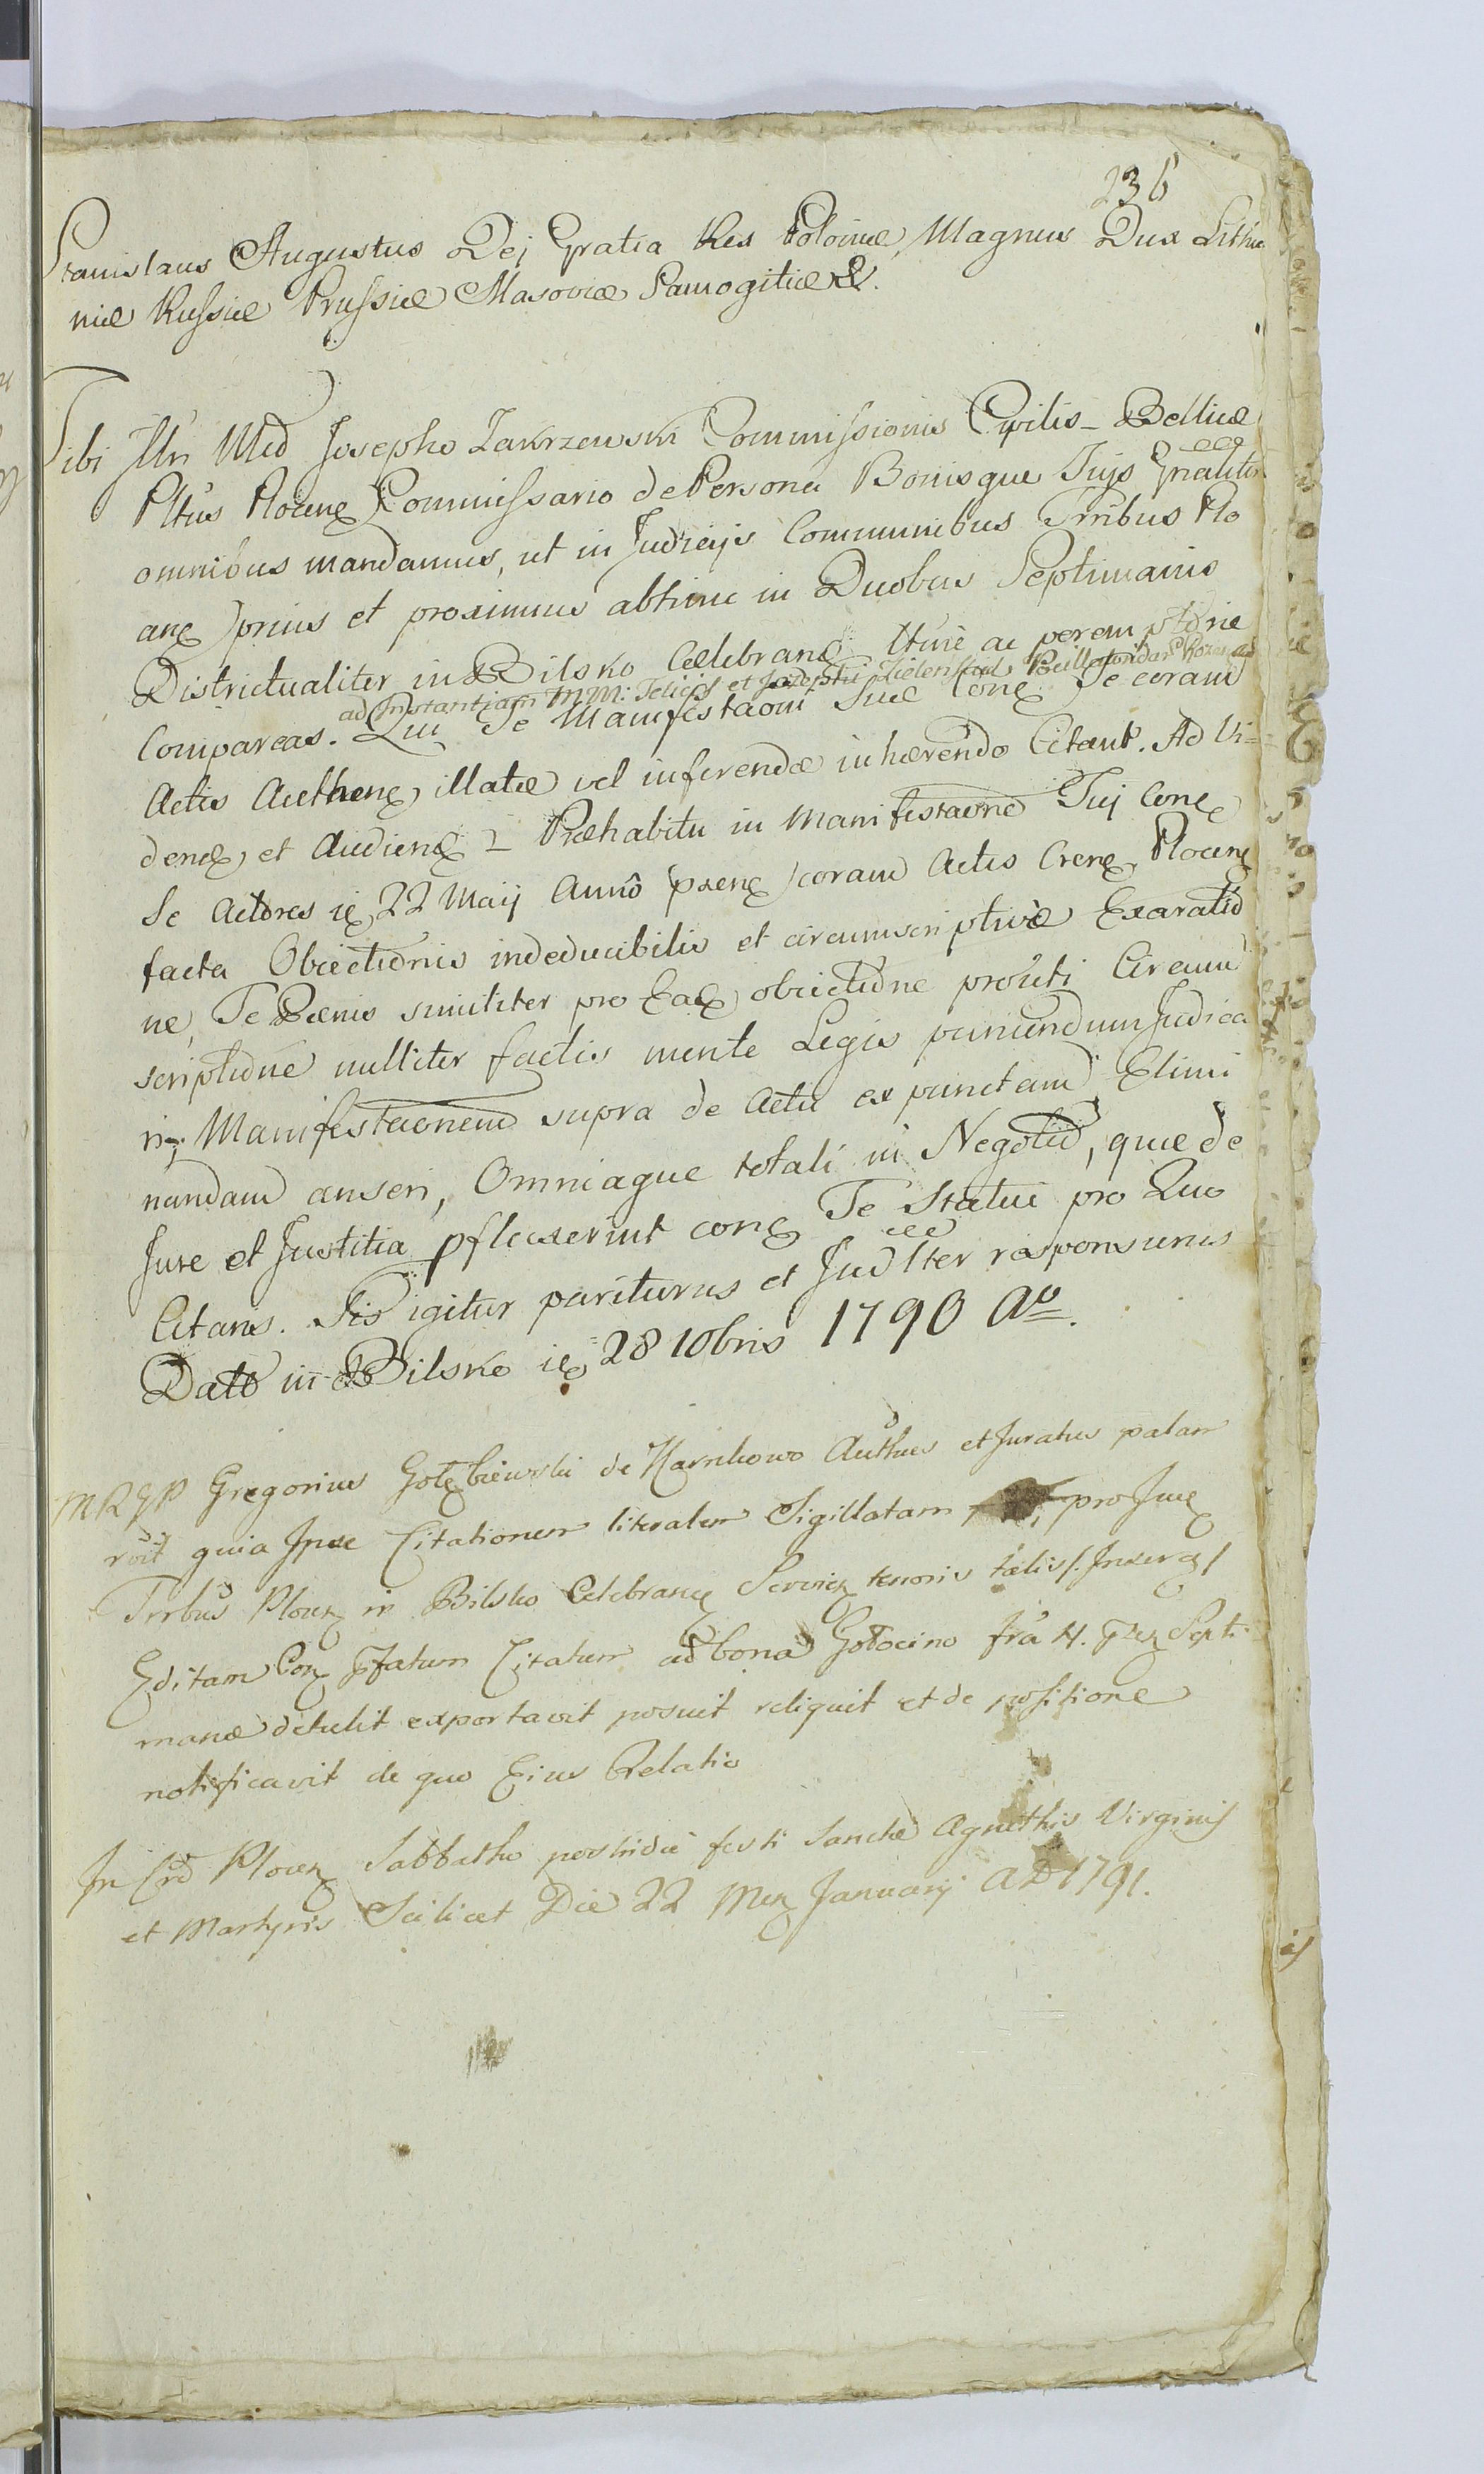 236
Stanislaus Augustus Dej Gratia Rex Poloniæ, Magnus Dux Lithua
niæ Russiæ Prussiæ Masoviæ Samogitiæ &.
Tibi Mco Josepho Zakrzewski Commissionis Cyvilis-Bellicæ
Pltus Plocen Commissario de Persona Bonisque Tuis Gnaliter
omnibus mandamus, ut in Judicijs Communibus Trribus Plo
cen prius et proximius abhinc in Duobus Septimanis
Districtualiter in Bilsko Celebran ltme ac peremptorie
ad Instantiam MM: Felicis et Josephi
Compareas. Qui Te Manifestaoni Suæ con Te coram
Actis Authen illatæ vel inferendæ inhærendo Citant. Ad Vi-
dend et Audiend Præhabitu in Manifestaone Tui con
Se Actores ie 22 Maij Anno præn coram Actis Cren Plocen
facta Obiectionis indeducibilis et circumscriptivæ Exaratio
ne, Te Pænis similiter pro Ea obiectione prouti Circum
scriptione nulliter factis mente Legis puniendum Judica
ri, Manifestaonem supra de Actu expunctam Elimi
nandam anseri, Omniaque totali in Negotio, quæ de
Jure et Justitia pflexerint con Te Statui pro Quo
Citaris. Sis igitur pariturus et Judlter responsurus
Datt in Bilsko ie 28 10bris 1790 Ao.
MRGP Gregorius Gołębiewski de Karnkowo Authus et Juratus palam
roit quia Ipse Citationem literalem Sigillatam pro Jud
Trrbus Plocen in Bilsko Celebran Servien tenoris talis /. Inser /
Editam Con Pfatum Citatum ad bona Gołocino fra 4. præ Septi
manæ detulit exportavit posuit reliquit et de positione
notificavit de quo Eius Relatio
In Crd Plocen Sabbatho postridie festi Sanctæ Agnethis Virginis
et Martyris Scilicet Die 22 Men Januarij AD 1791.